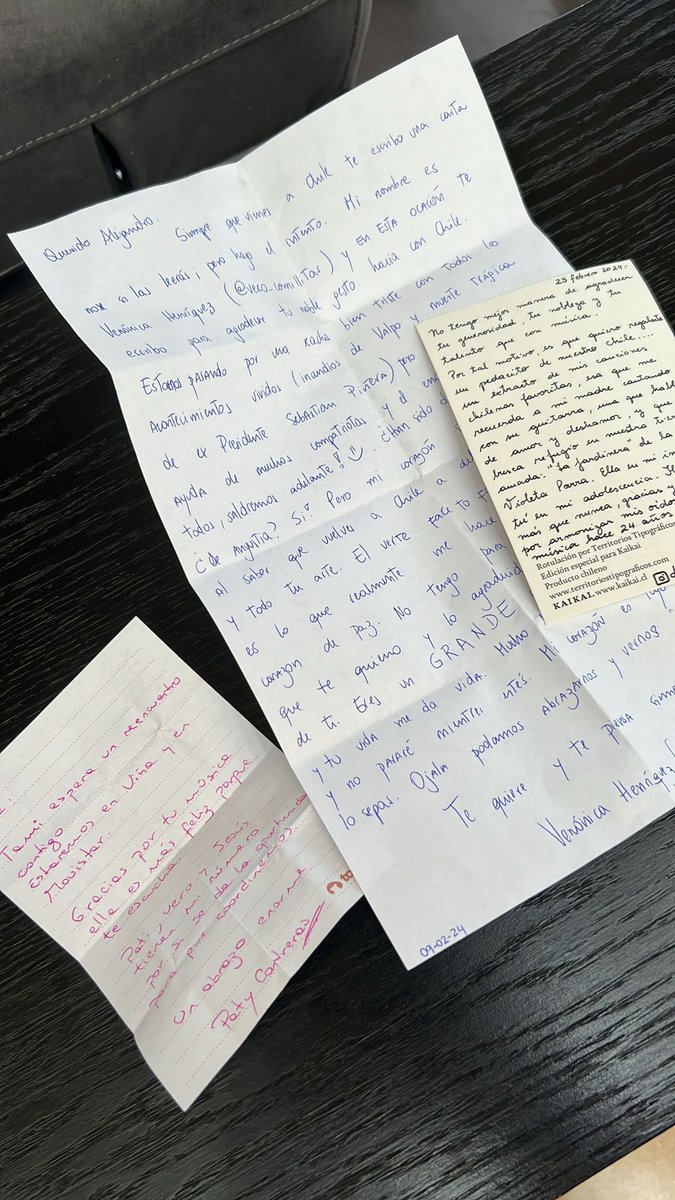 Querido Alejandro: Siempre que vienes a Chile te escribo una carta
si las leerás, pero hago el intento. Mi nombre es
Verónica Henríquez (@veco_comillitas) y en ESTA OCACIÓN te
escribo para agradecer tu noble gesto hacia con Chile.
Estamos pasando por una racha bien triste con todos los
Acontecimientos vividos (incendios de Valpo y muerte trágica
de ex Presidente Sebastián Piñera) pero
Ayuda de muchos compatriotas y el
todos, saldremos adelante! ¿Han sido
¿De Angustia? Sí Pero mi corazón
Al saber que vuelves a Chile a
y todo tu arte. El verte face to
es lo que realmente me hace
corazón de paz. No tengo para
que te quiero y lo agradecida
de ti. Eres un GRANDE Mucho
y tu vida me da vida. Mi corazón es
y no pararé mientras
lo sepas. Ojala podamos abrazarnos y vernos.
Te quiere y te
Verónica Henríquez
09-02-24
23 febrero 2024.-
No tengo mejor manera de agradecer
tu generosidad, tu nobleza y tu
talento que con música.
Por tal motivo, es que quiero regalarte
un pedacito de nuestro Chile...
un extracto de mis canciones
chilenas favoritas, esa que me
recuerda a mi madre cantando
con su guitarra, una que habla
de amor y desamor, y que
busca refugio en nuestra tierra
amada. "La Jardinera" de la
Violeta Parra. Ella en mi
tú en mi adolescencia.
más que nunca, gracias
por armonizar mis oídos
música hace 24 años
Rotulación por Territorios Tipográficos
Edición especial para Kaikai
Producto chileno
www.territoriostipograficos.com
KAIKAI. www.kaikai.cl
Tami espera un reencuentro
contigo
estaremos en Viña y en
Movistar.
Gracias por tu música
ella es más feliz porque
te escucha
Pati, vero y Jesús
tienen mi número
por si se da la oportunidad
para poder coordinarnos
un abrazo enorme
Paty Contreras